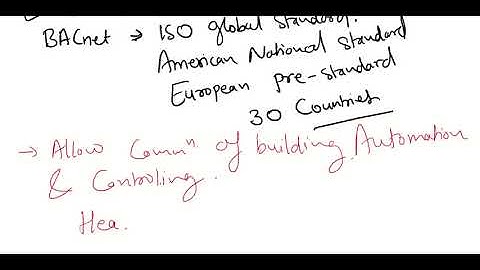 BACnet → ISO global standard.
American National Standard
European pre-standard
30 Countries
→ Allow Commⁿ. of building Automation
& Controling.
Hea.